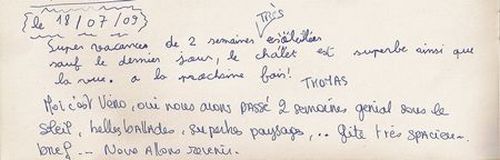 {le 18/07/09}
Super vacances de 2 semaines TRÈS ensoleillées
sauf le dernier jour, le châlet est superbe ainsi que
la vue. a la prochaine fois!
THOMAS
Moi c'est Véro, oui nous avons PASSÉ 2 semaines génial sous le
soleil, belles ballades, superbes paysages, .. gîte très spacieux.
bref -- Nous Allons revenir.